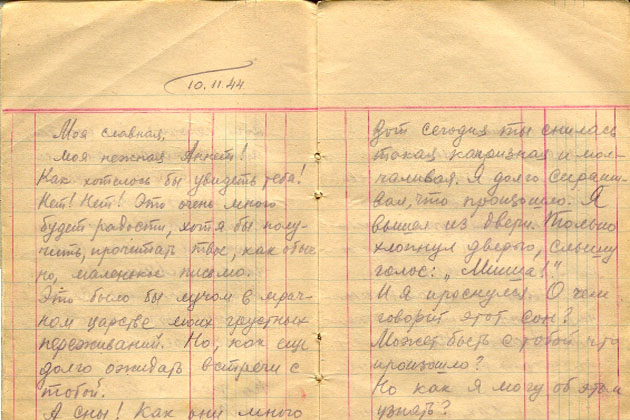 10.11.44
Моя славная,
моя нежная Аннет!
Как хотелось бы увидеть тебя!
Нет! Нет! Это очень много
будет радости, хотя бы полу-
чить, прочитать твое, как обыч-
но, маленькое письмо.
Это было бы лучом в мрач-
ном царстве моих грустных
переживаний. Но, как еще
долго ожидать встречи с
тобой.
А сны! Как они много
Вот сегодня ты снилась
такая капризная и мол-
чаливая. Я долго спраши-
вал, что произошло. Я
вышел из двери. Только
хлопнул дверью, слышу
голос: „Миша!"
И я проснулся. О чем
говорит этот сон?
Может быть с тобой что
произошло?
Но как я могу об этом
узнать?